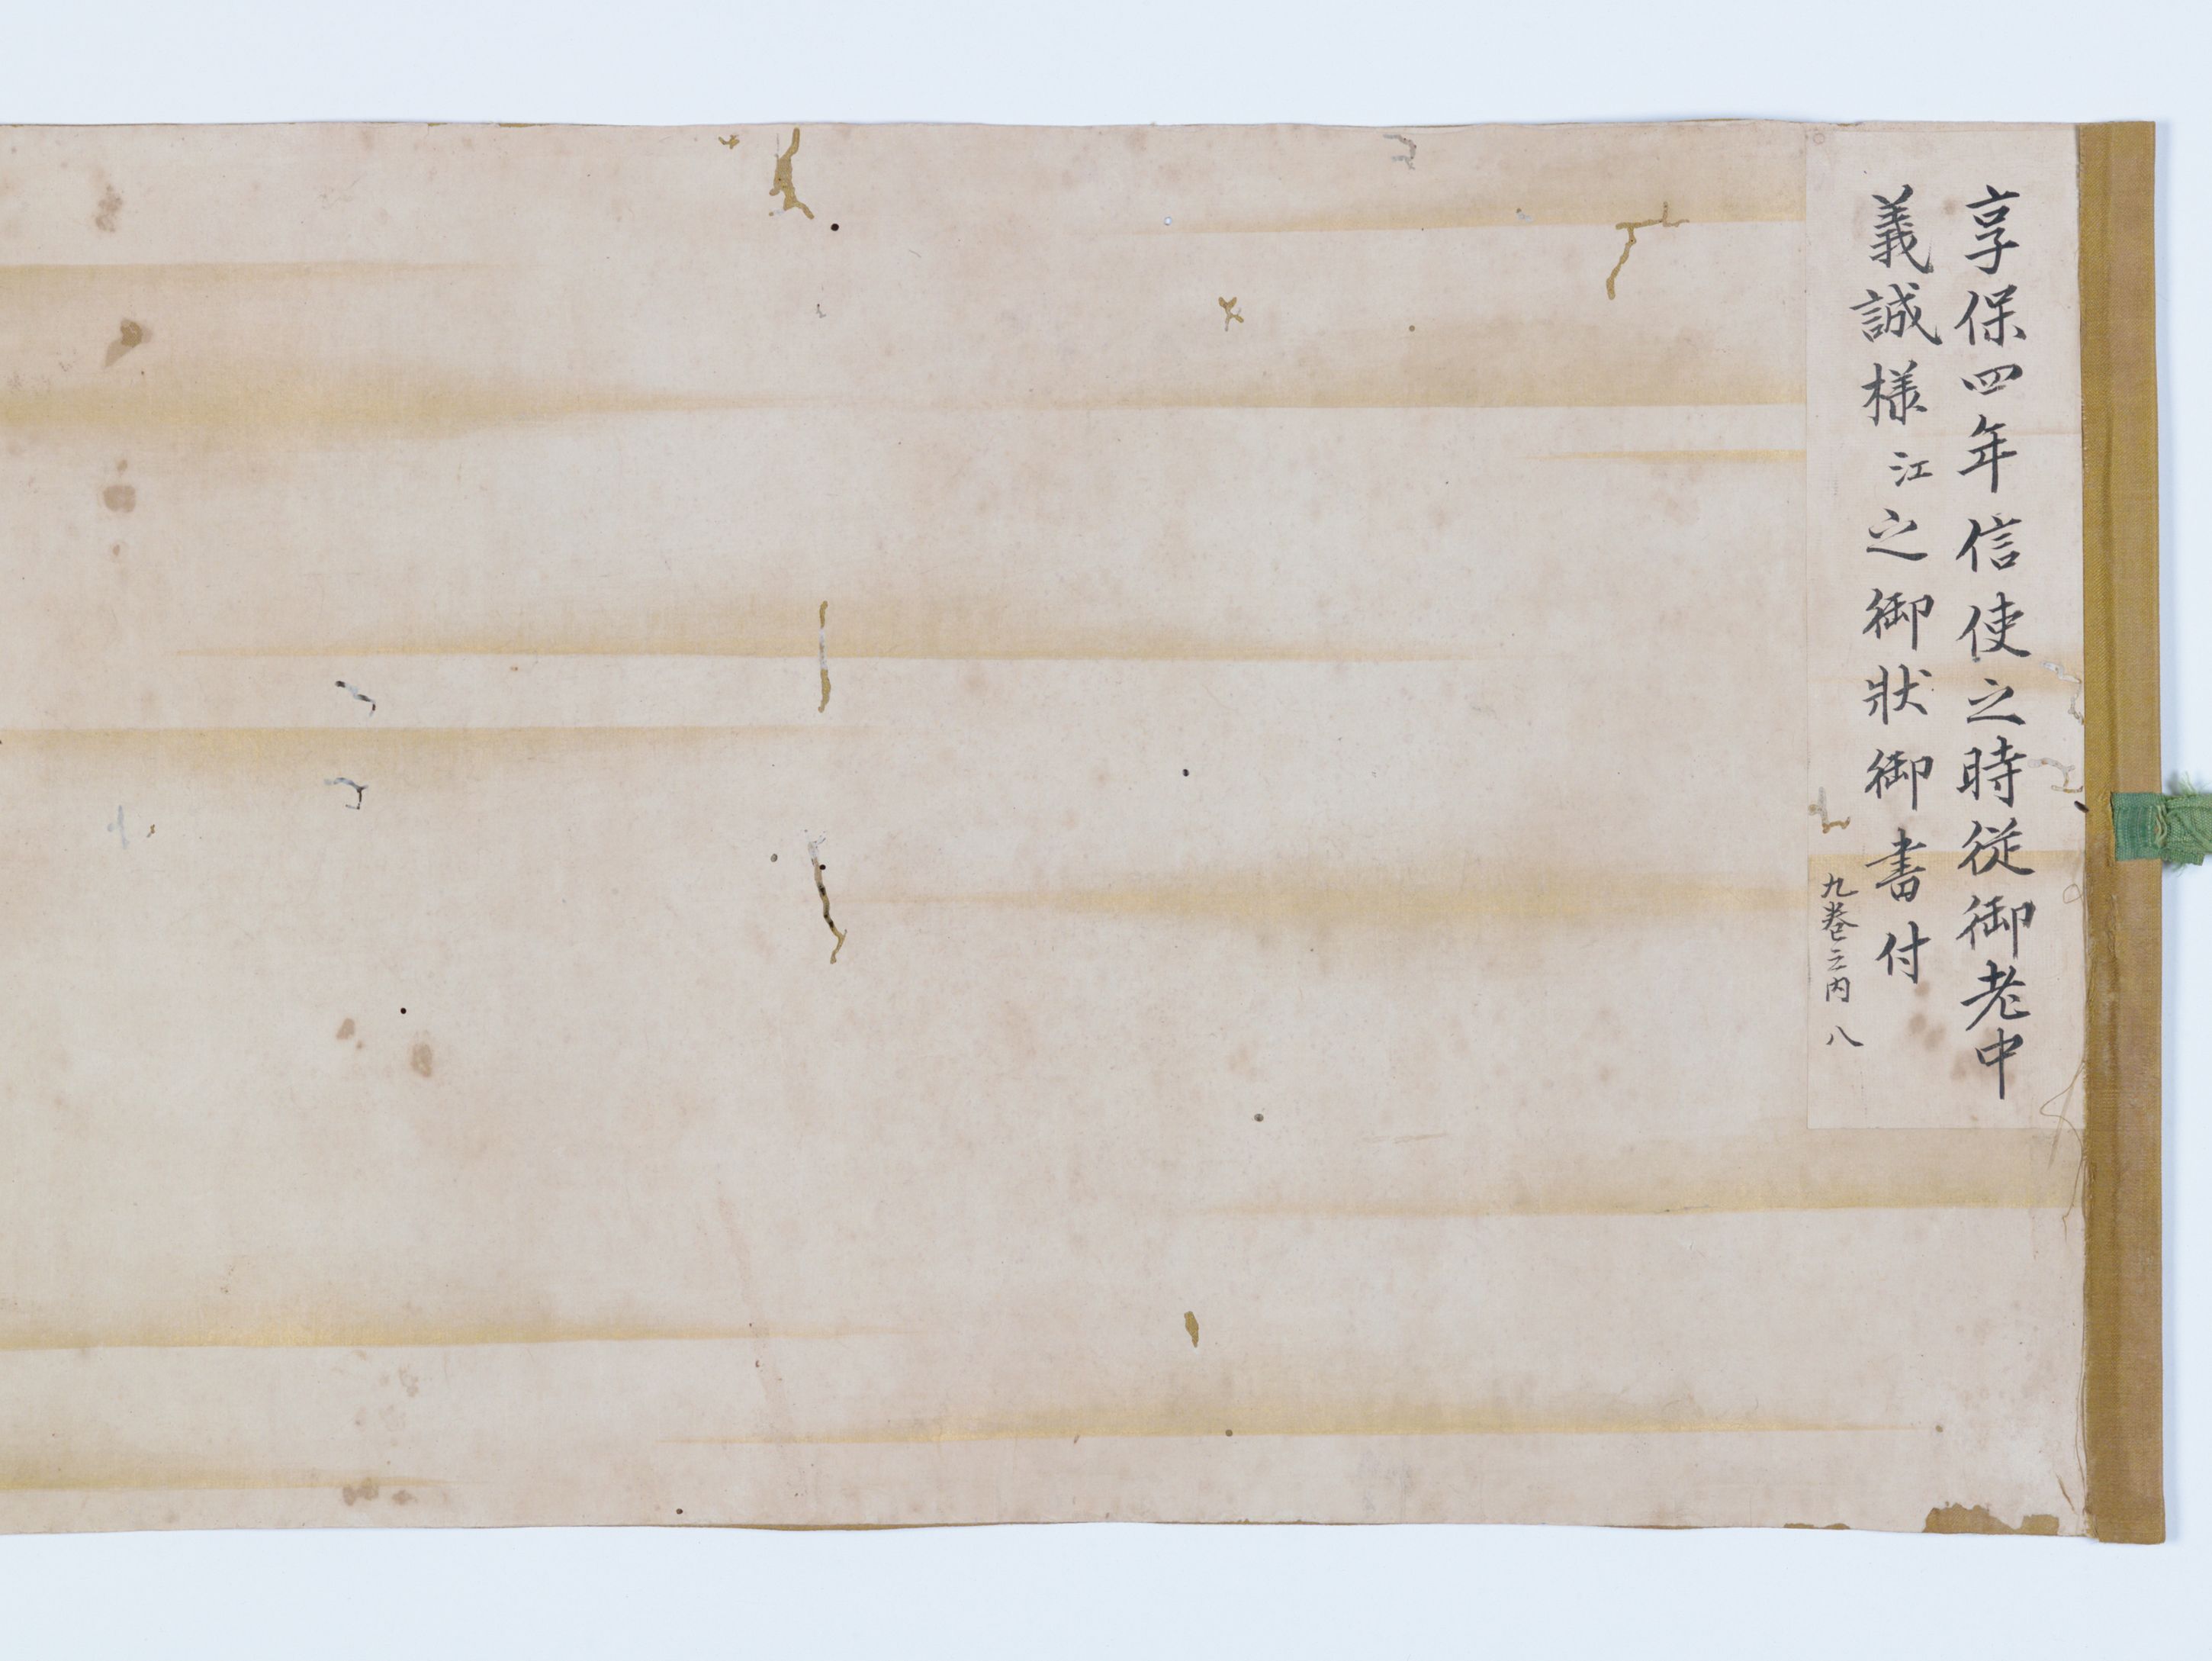 享保四年信使之時従御老中
義誠様江之御狀御書付
九巻之内 八